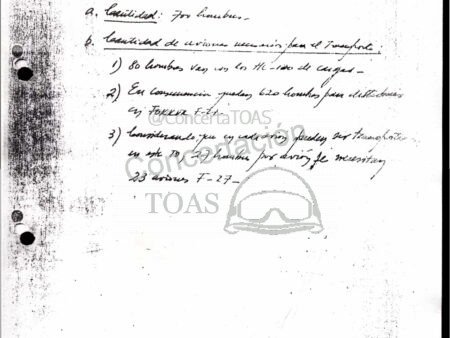 a. Cantidad: 700 hombres -
b. Cantidad de aviones necesarios para el Transporte:
1) 80 hombres van en los HC-130 de carga -
2) En consecuencia quedan 620 hombres para
en FOKKER F-27
@ConcertaTOAS
3) Considerando que en cada avión pueden ser
en este TO, 27 hombres por avión se necesitan
23 aviones F-27 -
Concertación
TOAS